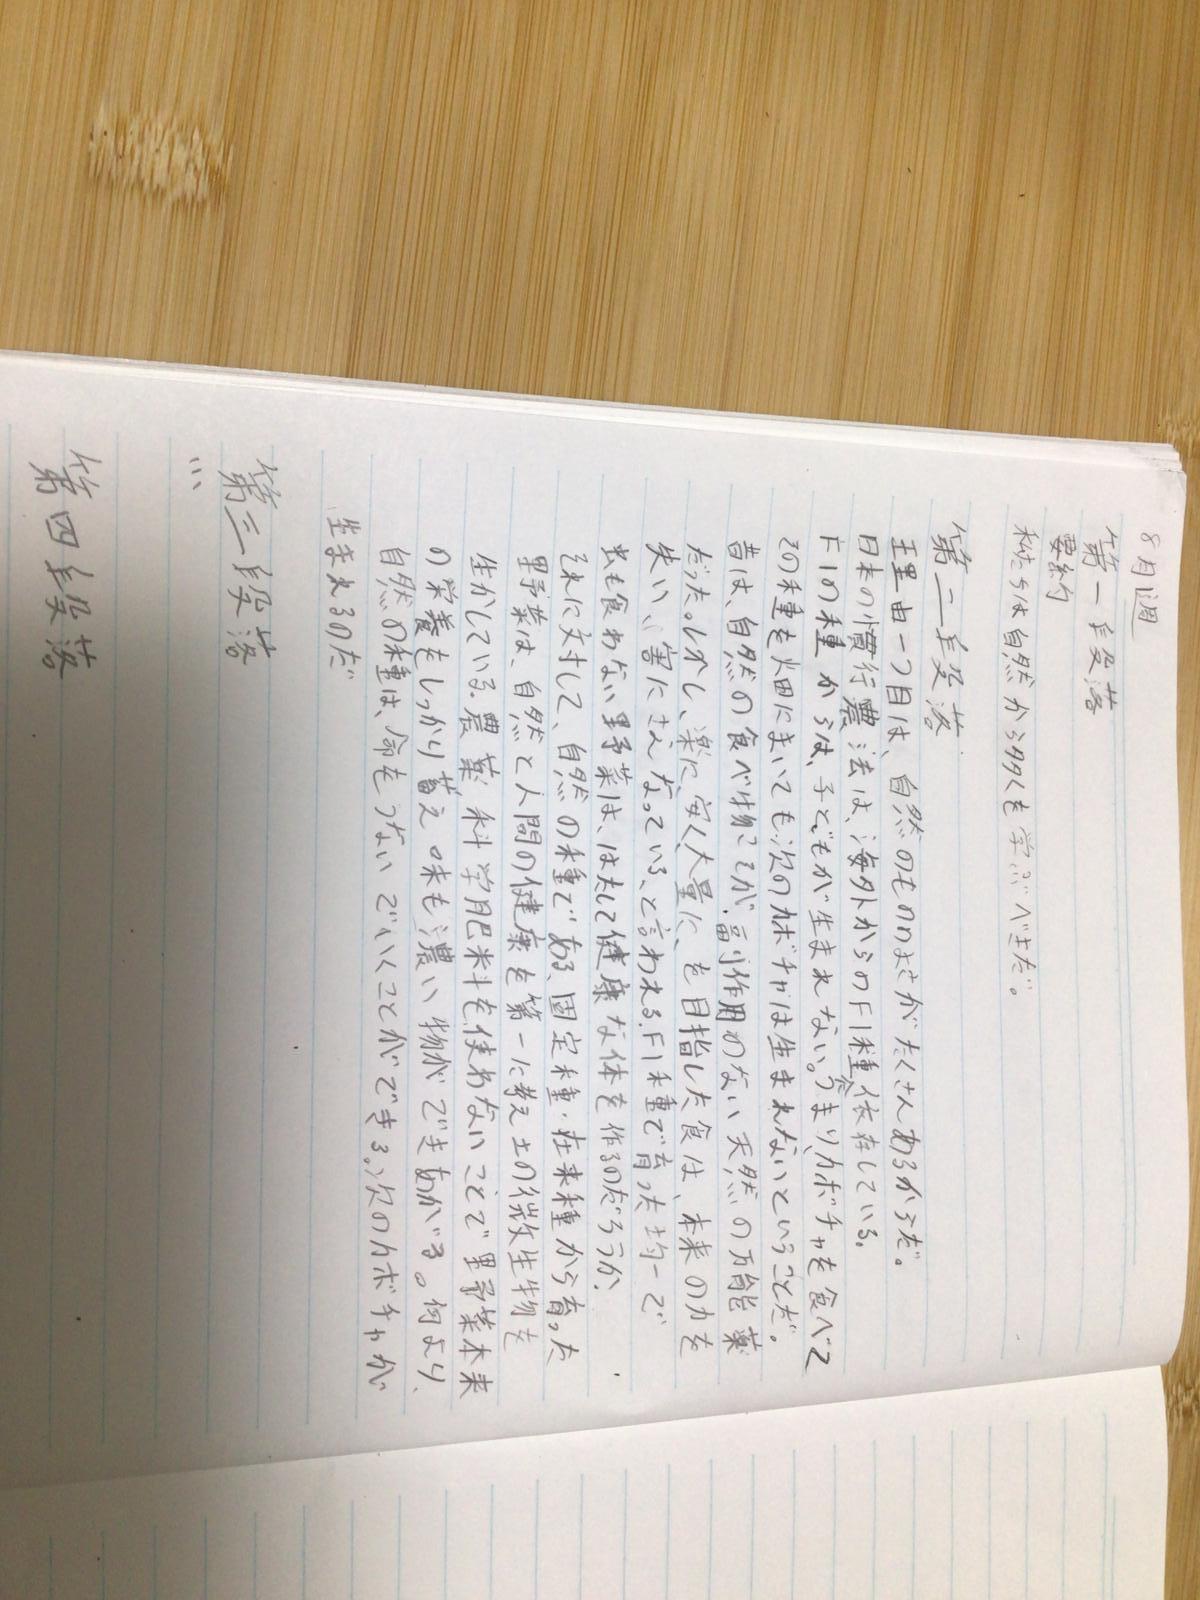 8月1週
第一段落
要約
私たちは自然から多くを学ぶべきだ。
第二段落
理由一つ目は、自然のもののよさがたくさんあるからだ。
日本の慣行農法は、海外からのF1種に依存している。
F1の種からは、子どもが生まれない。つまり、カボチャを食べて
その種を畑にまいても次のカボチャは生まれないということだ。
昔は、自然の食べ物こそが、副作用のない天然の万能薬
だった。しかし、楽に、安く、大量に、を目指した食は、本来の力を
失い、害にさえなっている、と言われる。F1種で育った均一で
虫も食わない野菜は、はたして健康な体を作るのだろうか。
それに対して、自然の種である、固定種・在来種から育った
野菜は、自然と人間の健康を第一に考え土の微生物を
生かしている。農薬、科学肥料を使わないことで野菜本来
の栄養をしっかり蓄え味も濃い物ができあがる。何より、
自然の種は、命をつないでいくことができる。次のカボチャが
生まれるのだ
第三段落
…
第四段落